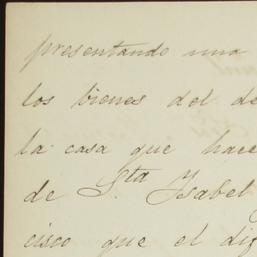 presentando una
los bienes del de
la casa que hace
de Sta Ysabel
cisco que el dif